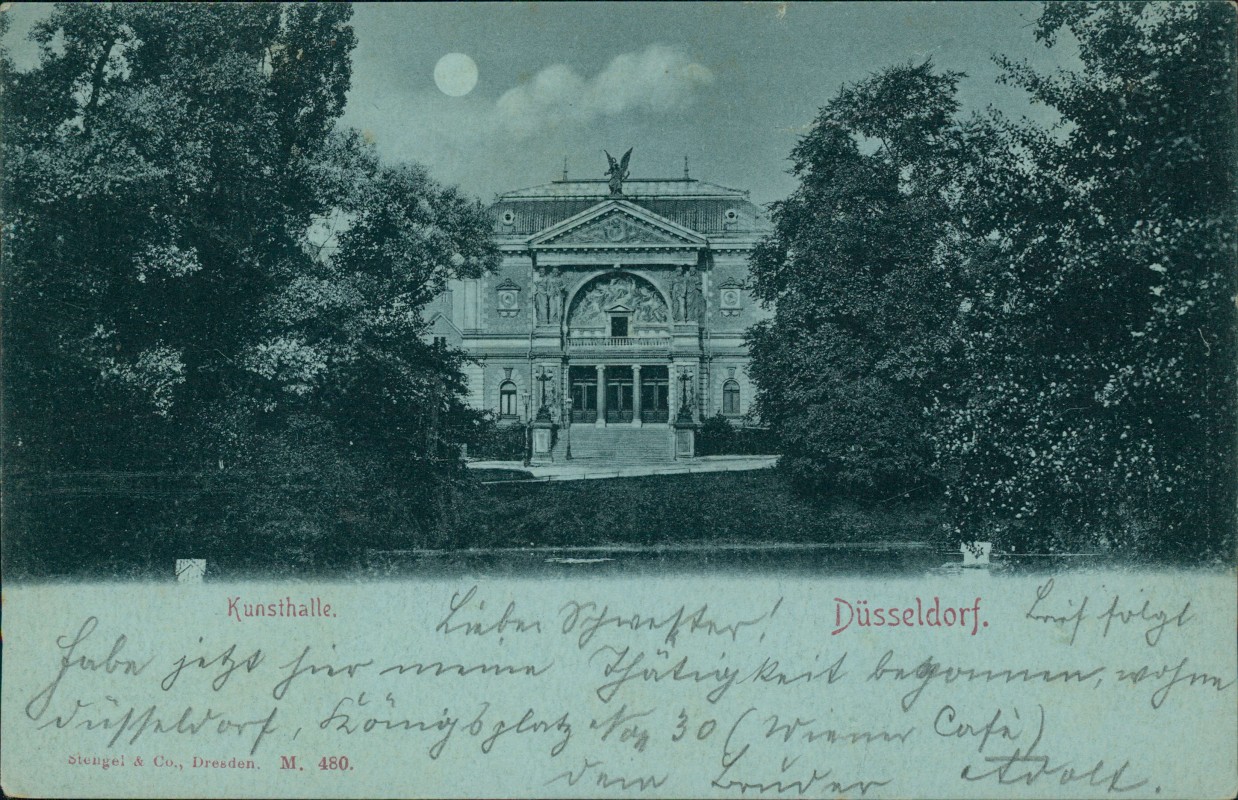 Kunsthalle.
Liebe Schwester!
Düsseldorf.
Brief folgt
Habe jetzt hier meine Thätigkeit begonnen, wohne
Düsseldorf, Königsplatz No 30 (Wiener Café)
Stengel & Co., Dresden. M. 480.
dein Bruder Adolf.